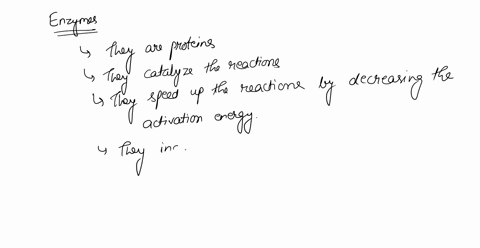 Enzymes
↳ They are proteins
↳ They catalyze the reactions
↳ They speed up the reactions by decreasing the
activation energy.
↳ They inc